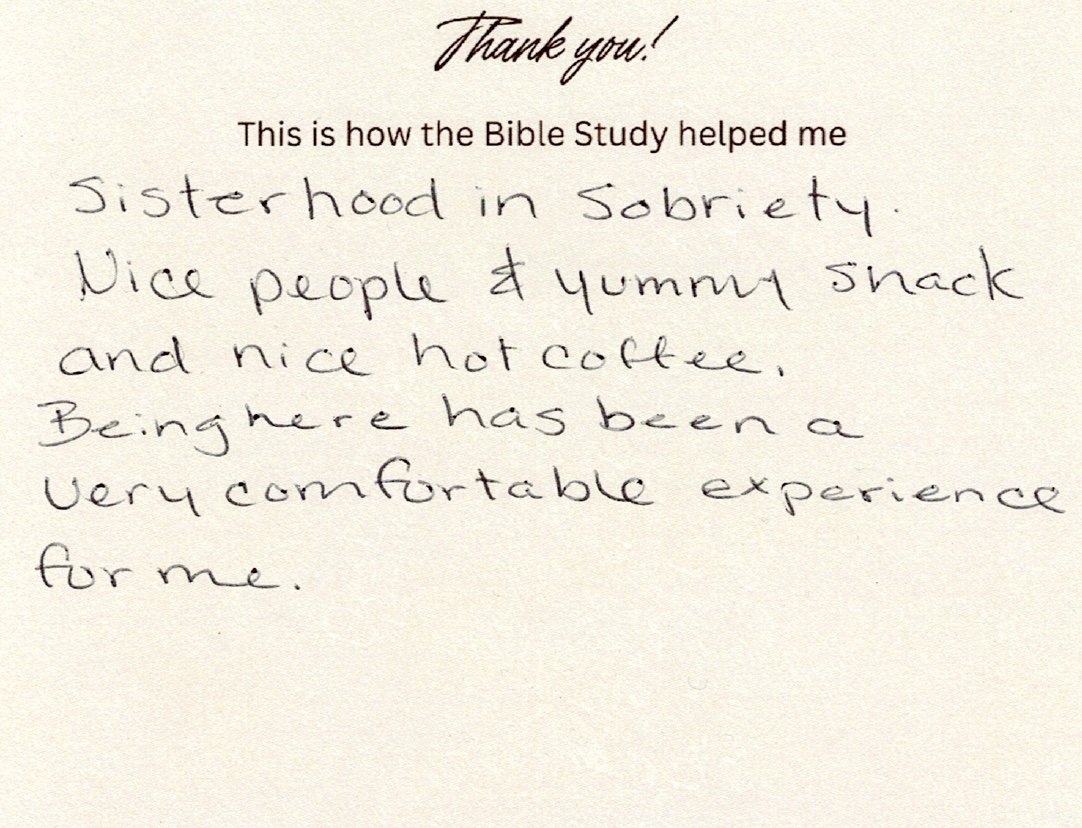 Thank you!
This is how the Bible Study helped me
Sisterhood in Sobriety.
Nice people & yummy snack
and nice hot coffee.
Being here has been a
very comfortable experience
for me.